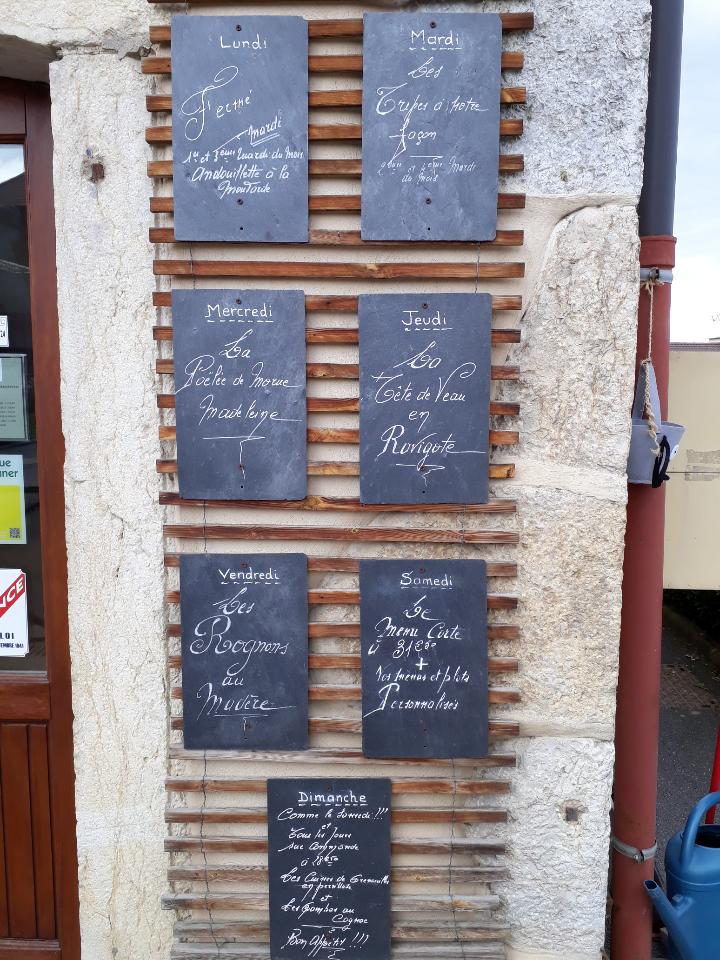 Lundi
Fermé
Mardi
1er et 3ème Mardi du Mois
Andouillette à la
Moutarde
Mardi
Les
Tripes à notre
façon
2ème et 4ème Mardi
du Mois
Mercredi
La
Poêlée de Morue
Madeleine
Jeudi
La
Tête de Veau
en
Ravigote
Vendredi
Les
Rognons
au
Madère
Samedi
Le
Menu Carte
à 31
+
Nos menus et plats
Personnalisés
Dimanche
Comme le Samedi !!!
et
Tous les Jours
sur commande
à
Les Cuisses de Grenouilles
en persillade
et
Les Gambas au
Cognac
Bon Appétit !!!